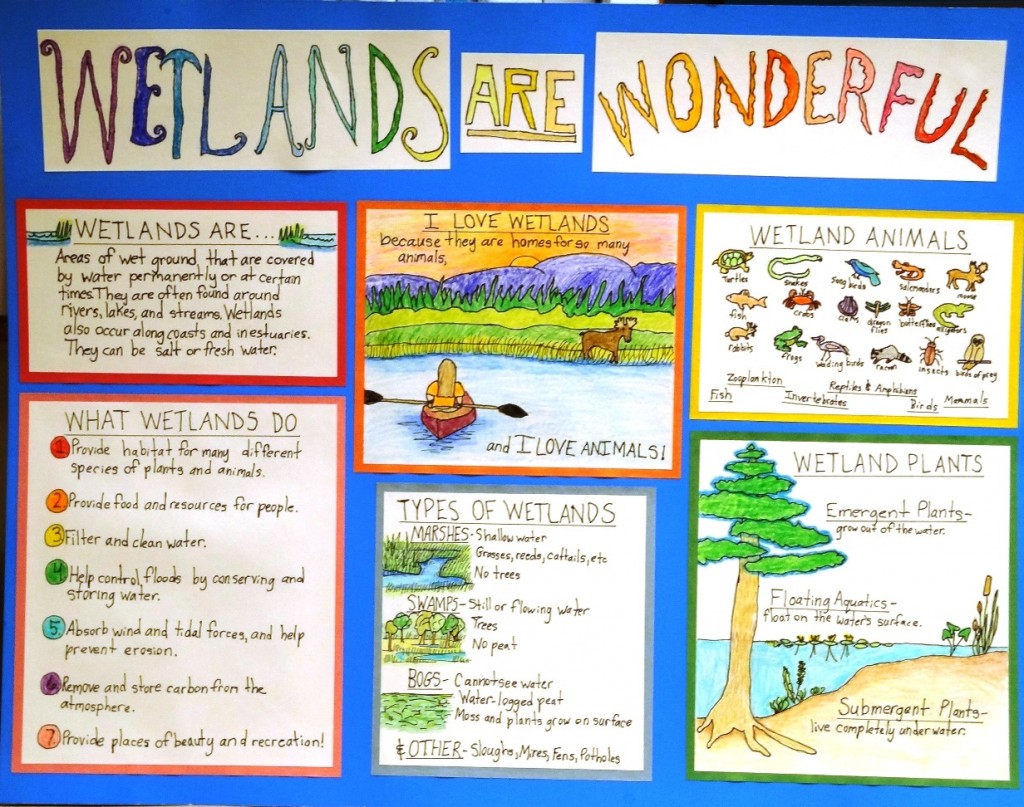 WETLANDS ARE WONDERFUL
WETLANDS ARE...
Areas of wet ground, that are covered
by water permanently or at certain
times. They are often found around
rivers, lakes, and streams. Wetlands
also occur along coasts and in estuaries.
They can be salt or fresh water.
WHAT WETLANDS DO
1. Provide habitat for many different
species of plants and animals.
2. Provide food and resources for people.
3. Filter and clean water.
4. Help control floods by conserving and
storing water.
5. Absorb wind and tidal forces, and help
prevent erosion.
6. Remove and store carbon from the
atmosphere.
7. Provide places of beauty and recreation!
I LOVE WETLANDS
because they are homes for so many
animals,
and I LOVE ANIMALS!
TYPES OF WETLANDS
MARSHES- Shallow water
Grasses, reeds, cattails, etc
No trees
SWAMPS- Still or flowing water
Trees
No peat
BOGS- Cannot see water
Water-logged peat
Moss and plants grow on surface
& OTHER- Sloughs, Mires, Fens, Potholes
WETLAND ANIMALS
turtles snakes song birds salamanders moose
fish crabs clams dragon flies butterflies alligators
rabbits frogs wading birds racoon insects birds of prey
Zooplankton Reptiles & Amphibians
Fish Invertebrates Birds Mammals
WETLAND PLANTS
Emergent Plants-
grow out of the water.
Floating Aquatics-
float on the water's surface.
Submergent Plants-
live completely underwater.